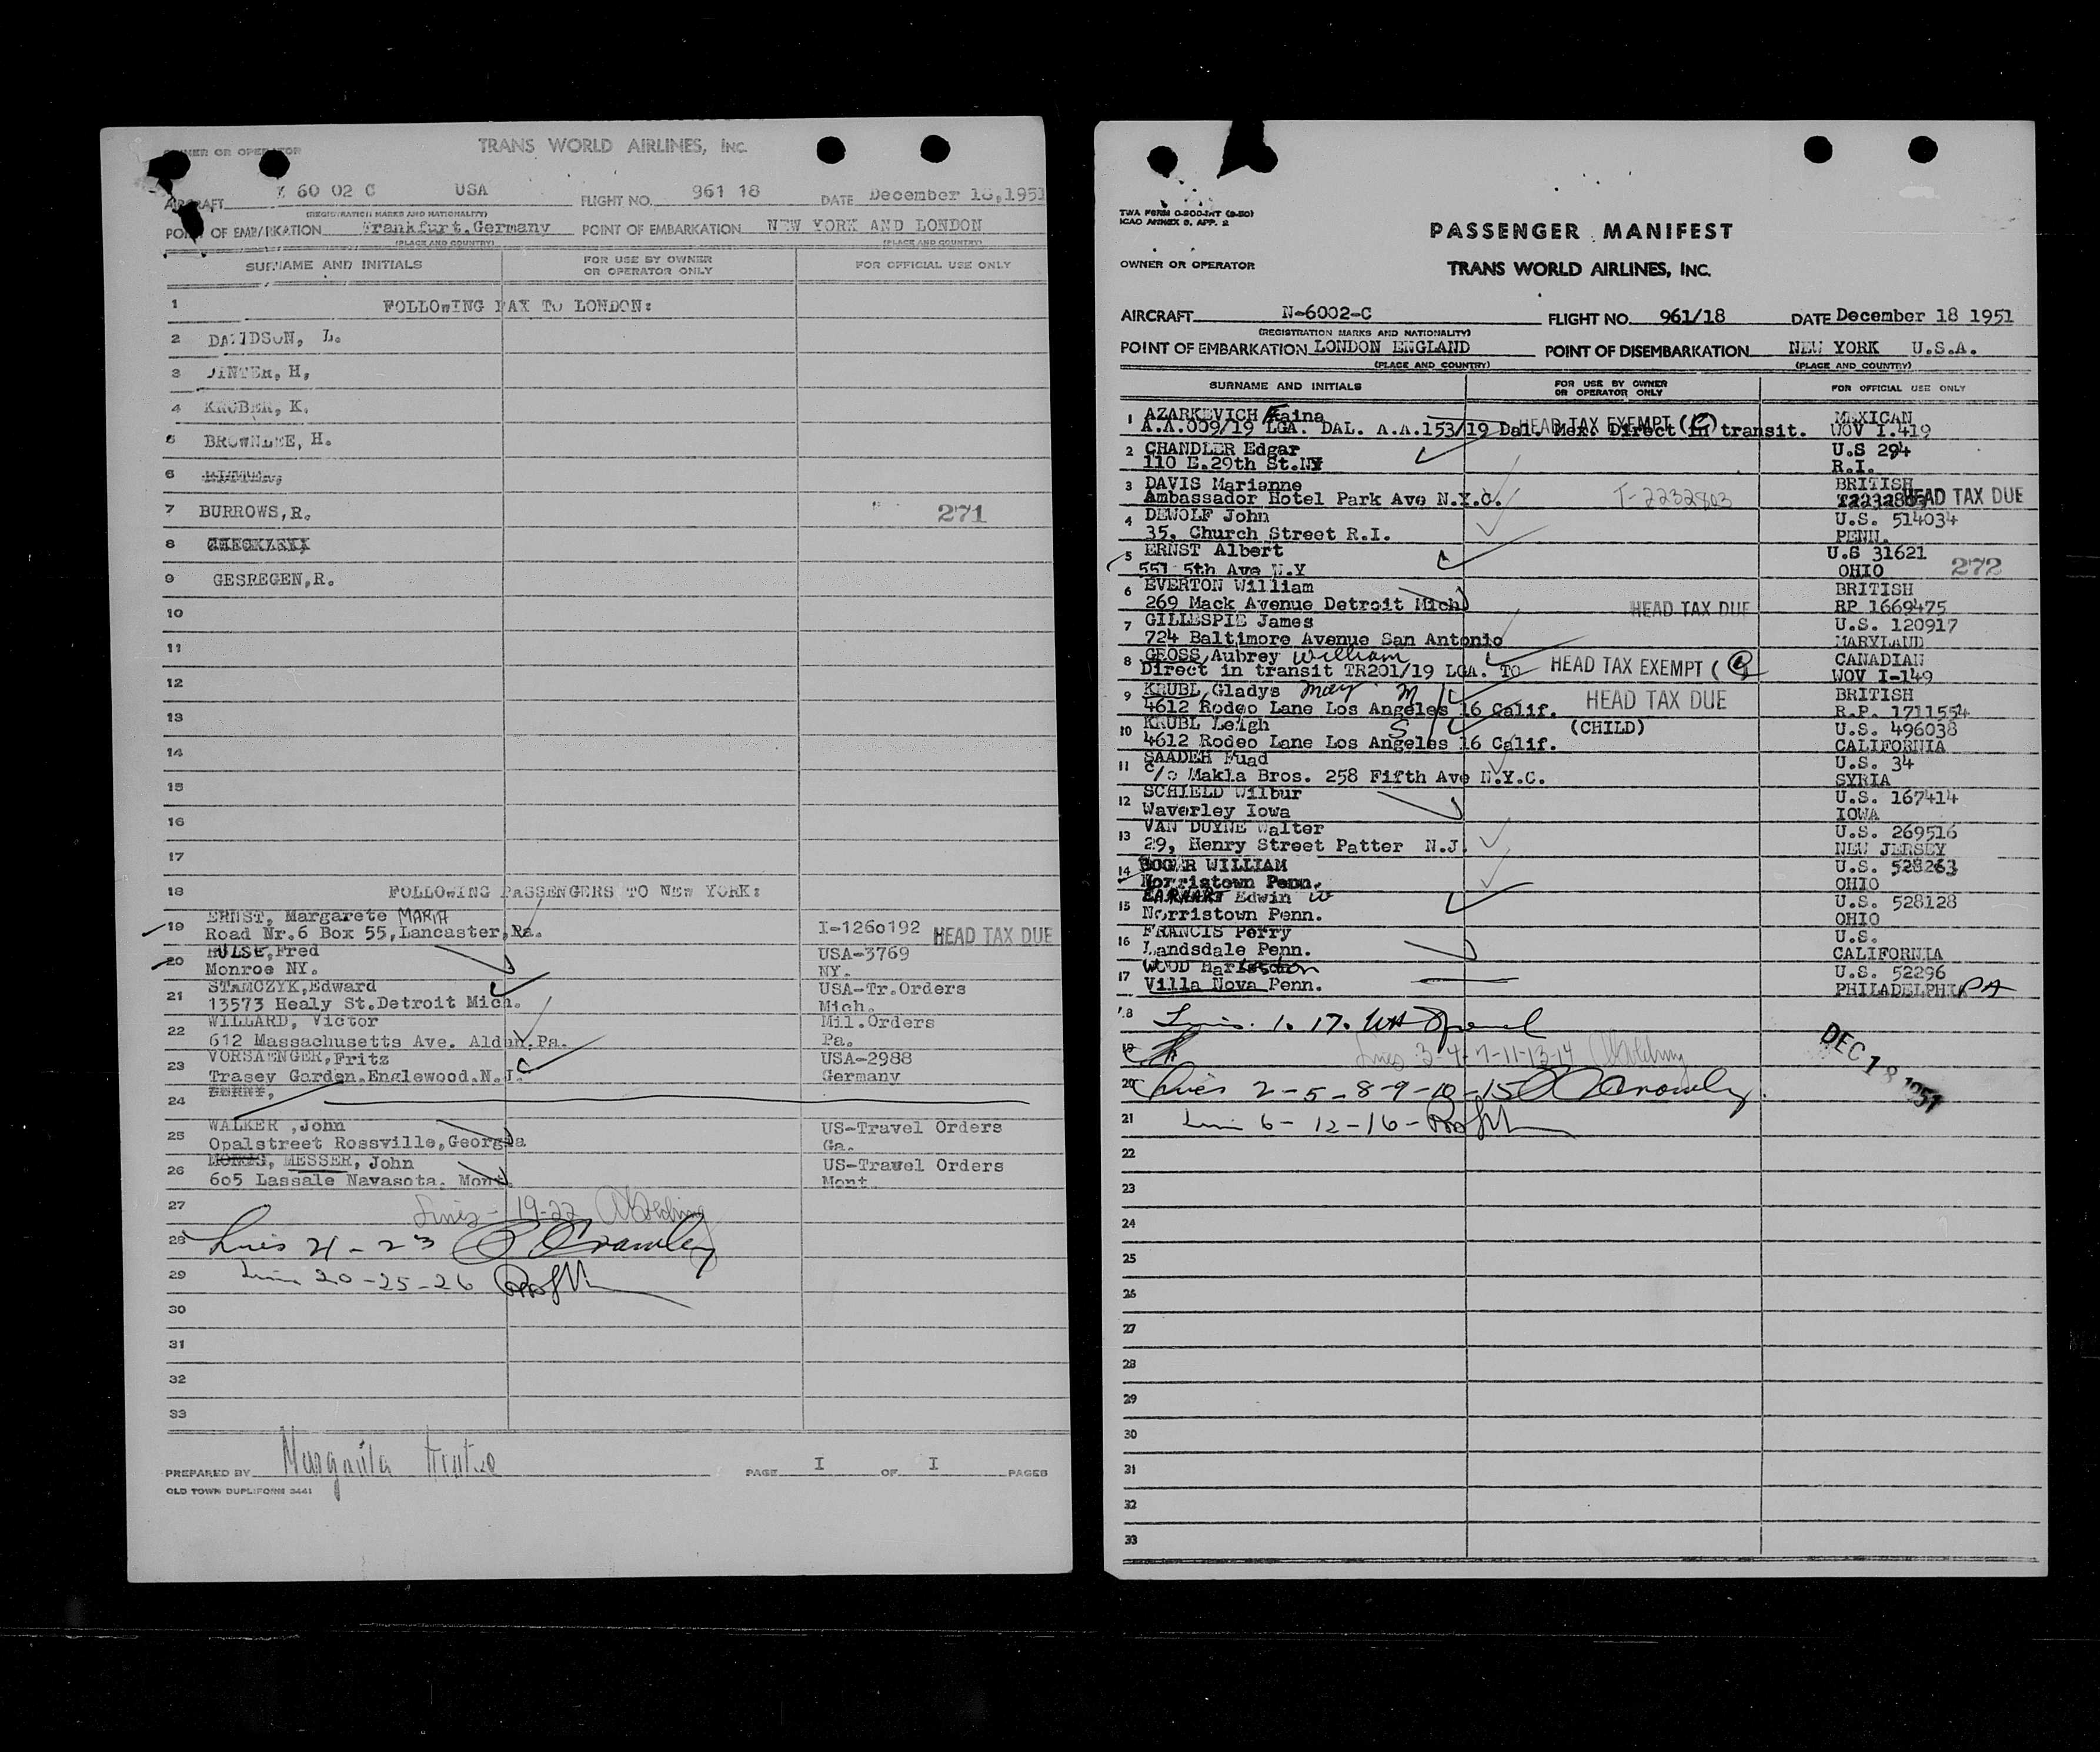 OWNER OR OPERATOR
TRANS WORLD AIRLINES, INC.
AIRCRAFT 60 02 C USA FLIGHT NO. 961 18 DATE December 18,1951
(REGISTRATION MARKS AND NATIONALITY)
POINT OF EMBARKATION Frankfurt.Germany POINT OF EMBARKATION NEW YORK AND LONDON
(PLACE AND COUNTRY) (PLACE AND COUNTRY)
SURNAME AND INITIALS FOR USE BY OWNER OR OPERATOR ONLY FOR OFFICIAL USE ONLY
1 FOLLOWING PAX TO LONDON:
2 DAVIDSON, L.
3 H,
4 KRUBER, K.
5 BROWNLEE, H.
6
7 BURROWS,R. 271
8
9 GESREGEN,R.
10
11
12
13
14
15
16
17
18 FOLLOWING PASSENGERS TO NEW YORK:
19 ERNST, Margarete MARIA
Road Nr.6 Box 55,Lancaster,Pa. I-1260192 HEAD TAX DUE
20 HULSE,Fred USA-3769
Monroe NY. NY.
21 STAMCZYK,Edward USA-Tr.Orders
13573 Healy St.Detroit Mich. Mich.
22 WILLARD, Victor Mil.Orders
612 Massachusetts Ave. Aldan,Pa. Pa.
23 VORSAENGER,Fritz USA-2988
Trasey Garden.Englewood.N.J. Germany
24
25 WALKER ,John US-Travel Orders
Opalstreet Rossville,Georgia Ga.
26 MESSER, John US-Travel Orders
605 Lassale Navasota. Mont. Mont
27 Lines - 19-22
28 Lines 21 - 23
29 Lines 20-25-26
30
31
32
33
PREPARED BY PAGE I OF I PAGES
OLD TOWN DUPLIFORM 3441
TWA FORM O-200-INT (9-50)
ICAO ANNEX 9, APP. 2
PASSENGER MANIFEST
OWNER OR OPERATOR TRANS WORLD AIRLINES, INC.
AIRCRAFT N-6002-C FLIGHT NO. 961/18 DATE December 18 1951
(REGISTRATION MARKS AND NATIONALITY)
POINT OF EMBARKATION LONDON ENGLAND POINT OF DISEMBARKATION NEW YORK U.S.A.
(PLACE AND COUNTRY) (PLACE AND COUNTRY)
SURNAME AND INITIALS FOR USE BY OWNER OR OPERATOR ONLY FOR OFFICIAL USE ONLY
1 AZARKEVICH Faina HEAD TAX EXEMPT (C) MEXICAN
A.A.009/19 LGA. DAL. A.A.153/19 Dal. Mex. Direct in transit. WOV I.419
2 CHANDLER Edgar U.S 294
110 E.29th St.NY R.I.
3 DAVIS Marianne BRITISH
Ambassador Hotel Park Ave N.Y.C. T-2232803 T2232803 HEAD TAX DUE
4 DEWOLF John U.S. 514034
35, Church Street R.I. PENN.
5 ERNST Albert U.S 31621
551 5th Ave N.Y OHIO 272
6 EVERTON William BRITISH
269 Mack Avenue Detroit Mich HEAD TAX DUE RP 1669475
7 GILLESPIE James U.S. 120917
724 Baltimore Avenue San Antonio MARYLAND
8 GEOSS,Aubrey William CANADIAN
Direct in transit TR201/19 LGA. TO HEAD TAX EXEMPT (C) WOV I-149
9 KRUBL,Gladys May M BRITISH
4612 Rodeo Lane Los Angeles 16 Calif. HEAD TAX DUE R.P. 1711554
10 KRUBL Leigh S (CHILD) U.S. 496038
4612 Rodeo Lane Los Angeles 16 Calif. CALIFORNIA
11 SAADEH Fuad U.S. 34
c/o Makla Bros. 258 Fifth Ave N.Y.C. SYRIA
12 SCHIELD Wilbur U.S. 167414
Waverley Iowa IOWA
13 VAN DUYNE Walter U.S. 269516
29, Henry Street Patter N.J. NEW JERSEY
14 WILLIAM U.S. 528263
Norristown Penn. OHIO
15 EARHART Edwin W U.S. 528128
Norristown Penn. OHIO
16 FRANCIS Perry U.S.
Landsdale Penn. CALIFORNIA
17 WOOD U.S. 52296
Villa Nova Penn. PHILADELPHI PA
18 Lines. 1. 17.
19 Lines 3-4-7-11-13-14
DEC 18 1951
20 Lines 2-5-8-9-10-15
21 Lines 6-12-16-
22
23
24
25
26
27
28
29
30
31
32
33